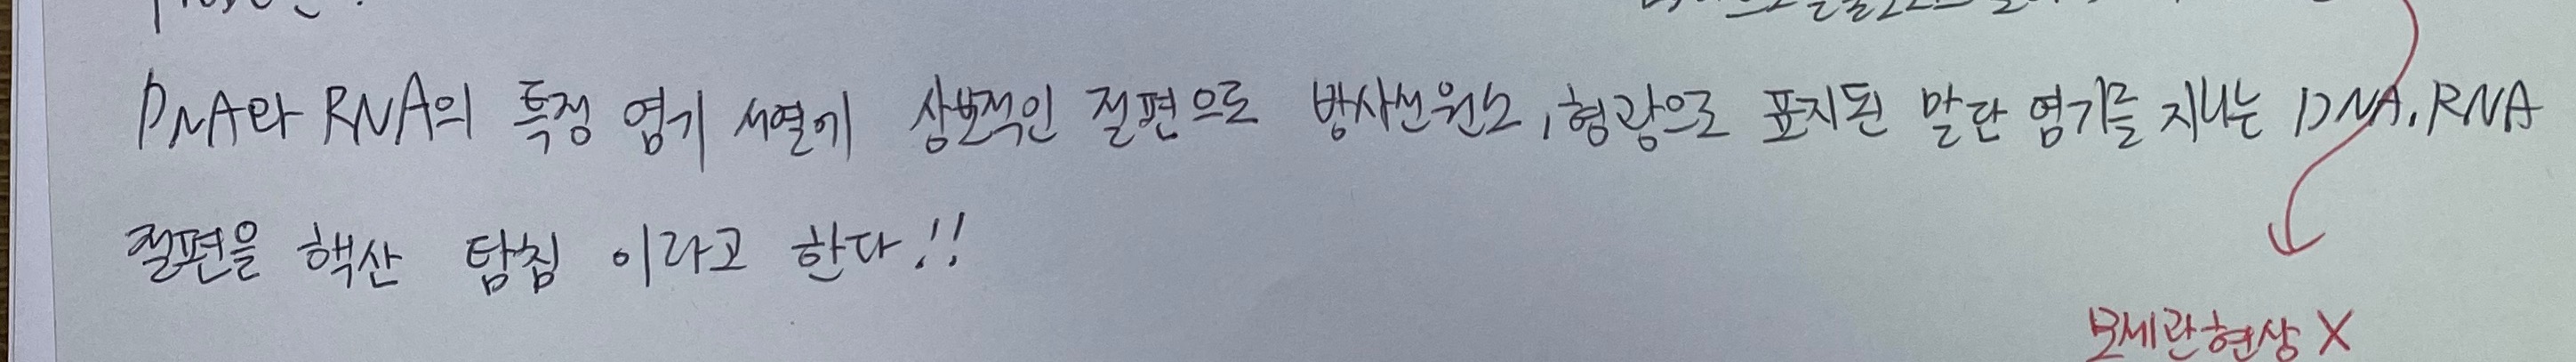 DNA와 RNA의 특정 염기 서열에 상보적인 절편으로 방사선원소, 형광으로 표지된 말단 염기를 지니는 DNA, RNA
절편을 핵산 탐침 이라고 한다!!
모세관현상 X